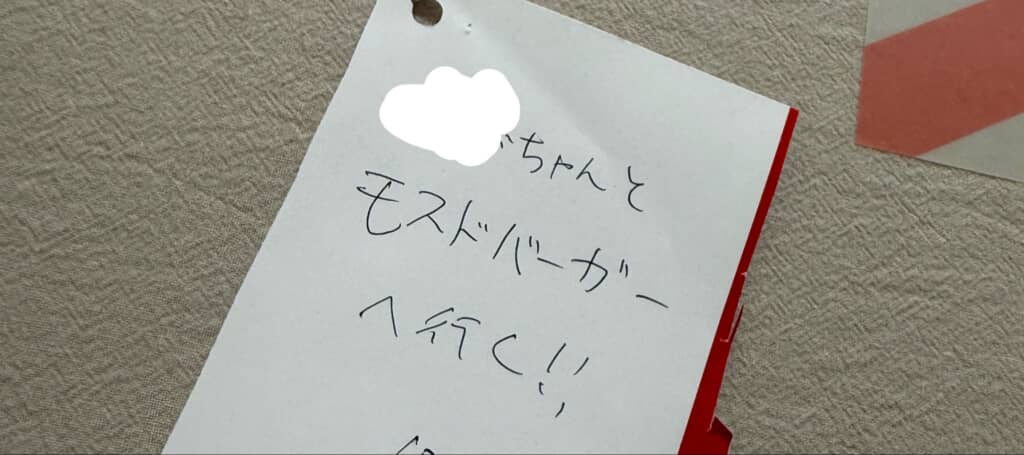 ちゃんと
モスドバーガー
へ行く!!